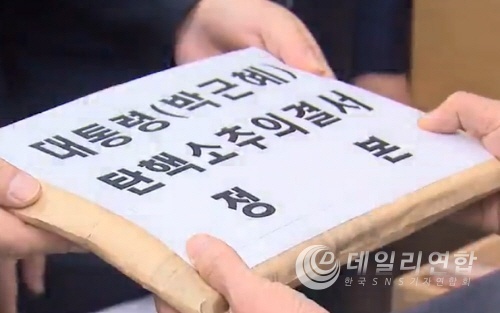 대통령(박근혜)
탄핵소추의결서
정 본
e 데일리연합
한국SNS기자연합회